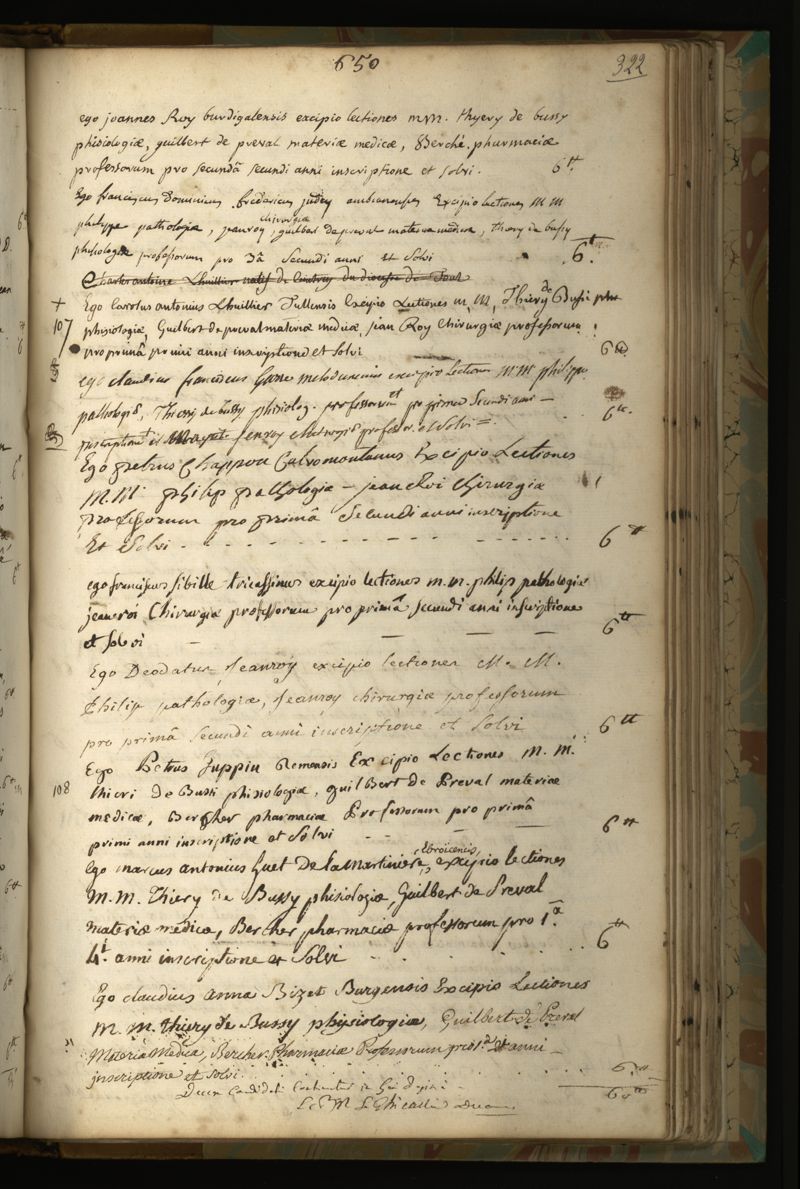 650
322
ego joannes Roy burdigalensis excipio lectiones m.m. thyery de bussy
phisiologiæ, guilbert de preval materiæ medicæ, Berché pharmaciæ
professorum pro secundâ secundi anni inscriptione et solvi. 6tt.
Ego franciscus Dominicus fredericus judey Excipio Lectiones M M
philippe pathologiæ, jeanroy chirurgiæ, guilbert de preval materiæ medicæ, thiery de bussy
phisologiæ professorum pro 3â secundi anni et solvi 6tt.
Charles antoine Lhuillier natif de du diocese de Toul
+ Ego Carolus antonius Lhuillier Tullensis Excipio Lectiones m, M, Thiery de Bussi
107 phisiologiæ, Guilbert de preval materiæ medicæ, jean Roy Chirurgiæ professorum
pro primâ primi anni inscriptione et solvi 6tt
ego claudius franciscus excipio Lectiones M M philippe
pathologiæ, Thiery de bussy phisiolog. professorum et pro prima Secundi anni
inscriptione et jenroy chirurgiæ professor. et Solvi =. 6tt.
Ego petrus Chappou Calvomontanus Excipio Lectiones
M. M. philip pathologiæ – jean Roi Chirurgiæ
professorum pro primâ Secundi anni inscriptione
Et Solvi - - - - - - 6tt
ego franciscus sibille tricassinus excipio lectiones m. m. philip pathologiæ
jeanroi Chirurgiæ professorum pro primâ secundi anni inscriptione
et solvi — — — — 6tt
Ego Deodatus Jeanroy excipio lectiones M. M.
Philip pathologiæ, Jeanroy chirurgiæ professorum
pro primâ secundi anni inscriptione et solvi 6tt
Ego Petrus Juppin Remensis Excipio Lectiones M. M.
108 thieri de Bussi phisiologiæ, guilbert de Preval materiæ
medicæ, Bercher pharmaciæ Professorum pro primâ
primi anni inscriptione et Solvi - - — — 6tt
Ego marcus antonius Guet De la Martiniere, Ebroicensis, excipio lectiones
M. M. Thiery de Bussy phisiologiæ, Guilbert de Preval
materiæ medicæ, Bercher pharmaciæ professorum pro 1.a
4.i anni inscriptione et Solvi . . . . . . 6tt
Ego claudius anna Bizet Burgensis Excipio Lectiones
M. M. Thiery de Bussy physiologiæ, Guilbert de Preval
Materiæ Medicæ, Bercher Pharmaciæ Professorum pro 1.a anni
inscriptione et solvi. . . . . . . 6tt
Decem Candidati 60tt